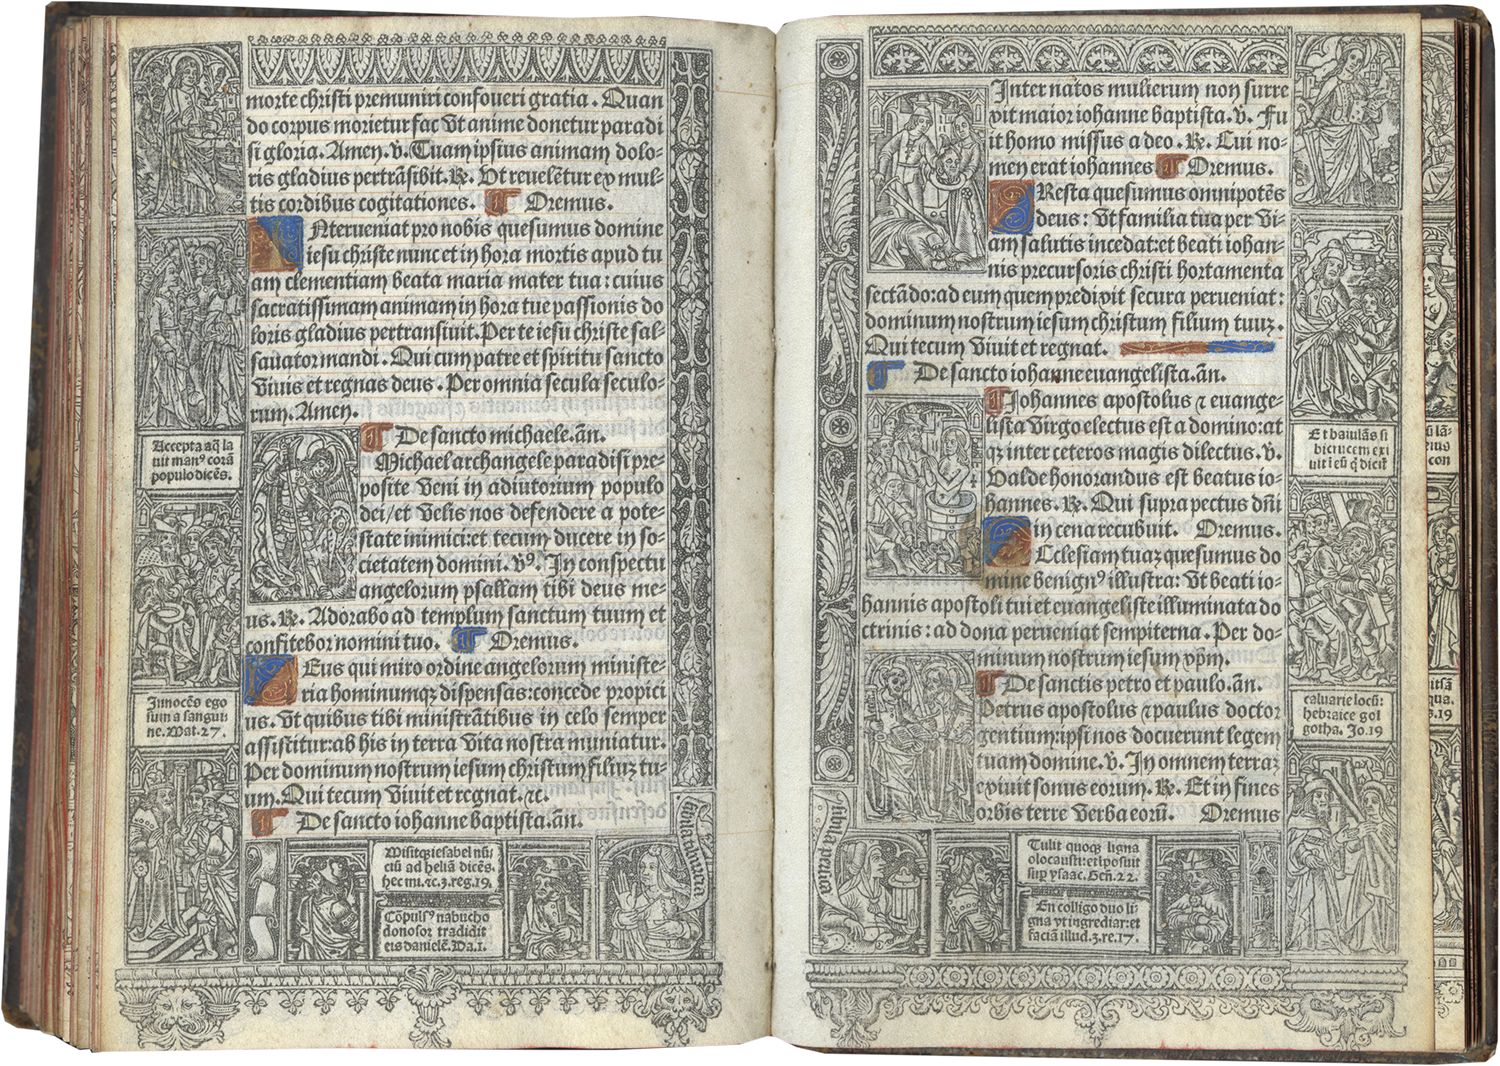 morte christi premuniri confoueri gratia. Quan
do corpus morietur fac vt anime donetur paradi
si gloria. Amen. v. Tuam ipsius animam dolo-
ris gladius pertrāsibit. ℟. Vt reuelētur ex mul-
tis cordibus cogitationes. Oremus.
Nterueniat pro nobis quesumus domine
iesu christe nunc et in hora mortis apud tu
am clementiam beata maria mater tua: cuius
sacratissimam animam in hora tue passionis do
loris gladius pertransiuit. Per te iesu christe sal-
sauator mandi. Qui cum patre et spiritu sancto
viuis et regnas deus. Per omnia secula seculo-
rum. Amen.
De sancto michaele. añ.
Michael archangele paradisi pre-
posite veni in adiutorium populo
dei/et velis nos defendere a pote-
state inimici: et tecum ducere in so-
cietatem domini. v̄ꝰ. In conspectu
angelorum psallam tibi deus me-
us. ℟. Adorabo ad templum sanctum tuum et
confitebor nomini tuo. Oremus.
Eus qui miro ordine angelorum ministe-
ria hominumqꝫ dispensas: concede propici
us. vt quibus tibi ministrātibus in celo semper
assistitur: ab his in terra vita nostra muniatur.
Per dominum nostrum iesum christum filiuꝫ tu-
um. Qui tecum viuit et regnat. ⁊c.
De sancto iohanne baptista. añ.
Accepta aq̄ la
uit manꝰ corā
populo dicēs.
Innocēs ego
sum a sangui
ne. Mat. 27.
Misitqꝫ iesabel nū
ciū ad heliā dicēs.
hec mi. ⁊c. 3. reg. 19.
Cōpulsꝰ nabucho
donosor tradidit
eis danielē. Da. 1.
Inter natos mulierum non surre
xit maior iohanne baptista. v. Fu
it homo missus a deo. ℟. Cui no-
men erat iohannes Oremus.
Resta quesumus omnipotēs
deus: vt familia tua per vi-
am salutis incedat: et beati iohan-
nis precursoris christi hortamenta
sectādo: ad eum quem predixit secura perueniat:
dominum nostrum iesum christum filium tuuꝫ.
Qui tecum viuit et regnat.
De sancto iohanne euangelista. añ.
Iohannes apostolus ⁊ euange-
lista virgo electus est a domino: at
qꝫ inter ceteros magis dilectus. v.
Valde honorandus est beatus io-
hannes. ℟. Qui supra pectus dñi
in cena recubuit. Oremus.
Cclesiam tuaꝫ quesumus do
mine benignꝰ illustra: vt beati io-
hannis apostoli tui et euangeliste illuminata do
ctrinis: ad dona perueniat sempiterna. Per do-
minum nostrum iesum xp̄m.
De sanctis petro et paulo. añ.
Petrus apostolus ⁊ paulus doctor
gentium: ipsi nos docuerunt legem
tuam domine. v. In omnem terraꝫ
exiuit sonus eorum. ℟. Et in fines
orbis terre verba eorū. Oremus
sibila persica
Tulit quoqꝫ ligna
olocausti: et iposuit
sup ysaac. Geñ. 22.
En colligo duo li
gna vt ingrediar: et
faciā illud. 3. re. 17.
Et baiulās si
bi crucem exi
uit i eū q̄ dicit
caluarie locū:
hebraice gol
gotha. Jo. 19